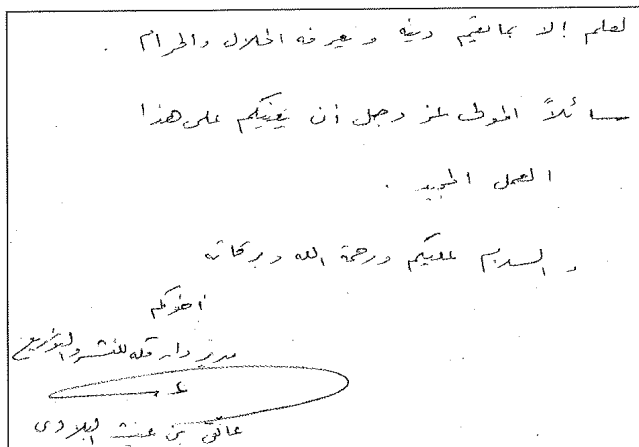 لعلم إلا بما يقيم دينه و يعرفه الحلال والحرام .
سائلاً المولى عز وجل أن يعينكم على هذا
العمل المجيد .
و السلام عليكم ورحمة الله وبركاته
أخوكم
مدير دار مكة للنشر والتوزيع
عاتق بن غيث البلادي